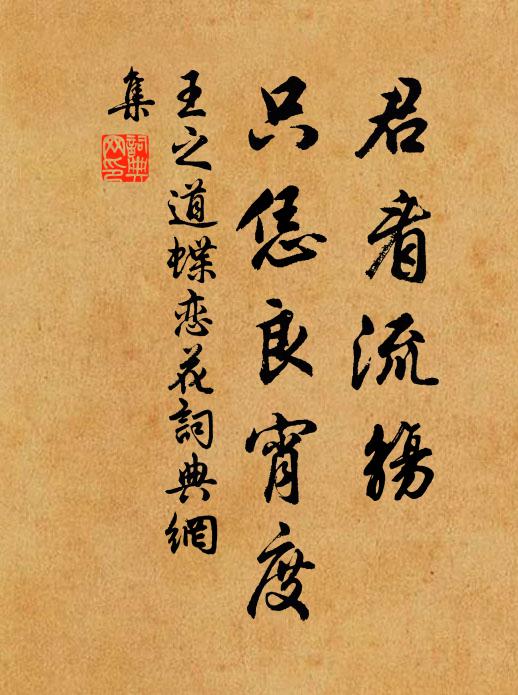 君看流觞
只恁良宵度
王之道蝶恋花詞典網
集
詞典
网印